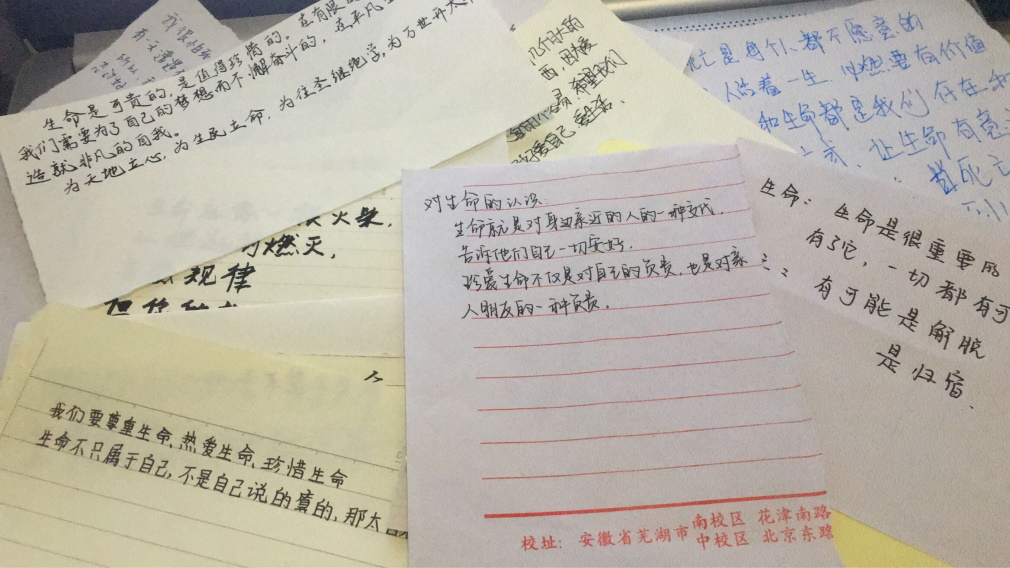 生命是可贵的,是值得珍惜的。在有限的
我们需要为了自己的梦想而不懈奋斗的,这平凡
造就非凡的自我。
为天地立心,为生民立命,为往圣继绝学,为万世开太
火柴,
可燃灭,
规律
我们要尊重生命、热爱生命、珍惜生命
生命不只属于自己,不是自己说的算的,那太
对生命的认识:
生命就是对身边亲近的人的一种交代,
告诉他们自己一切安好.
珍爱生命不仅是对自己的负责,也是对亲
人朋友的一种负责.
校址: 安徽省芜湖市 南校区 花津南路
中校区 北京东路
都不愿意的
人活着一生,必然要有价值
和生命都是我们存在
让生命有意
当死亡
生命: 生命是很重要的
有了它,一切都有可
有可能是解脱
是归宿.